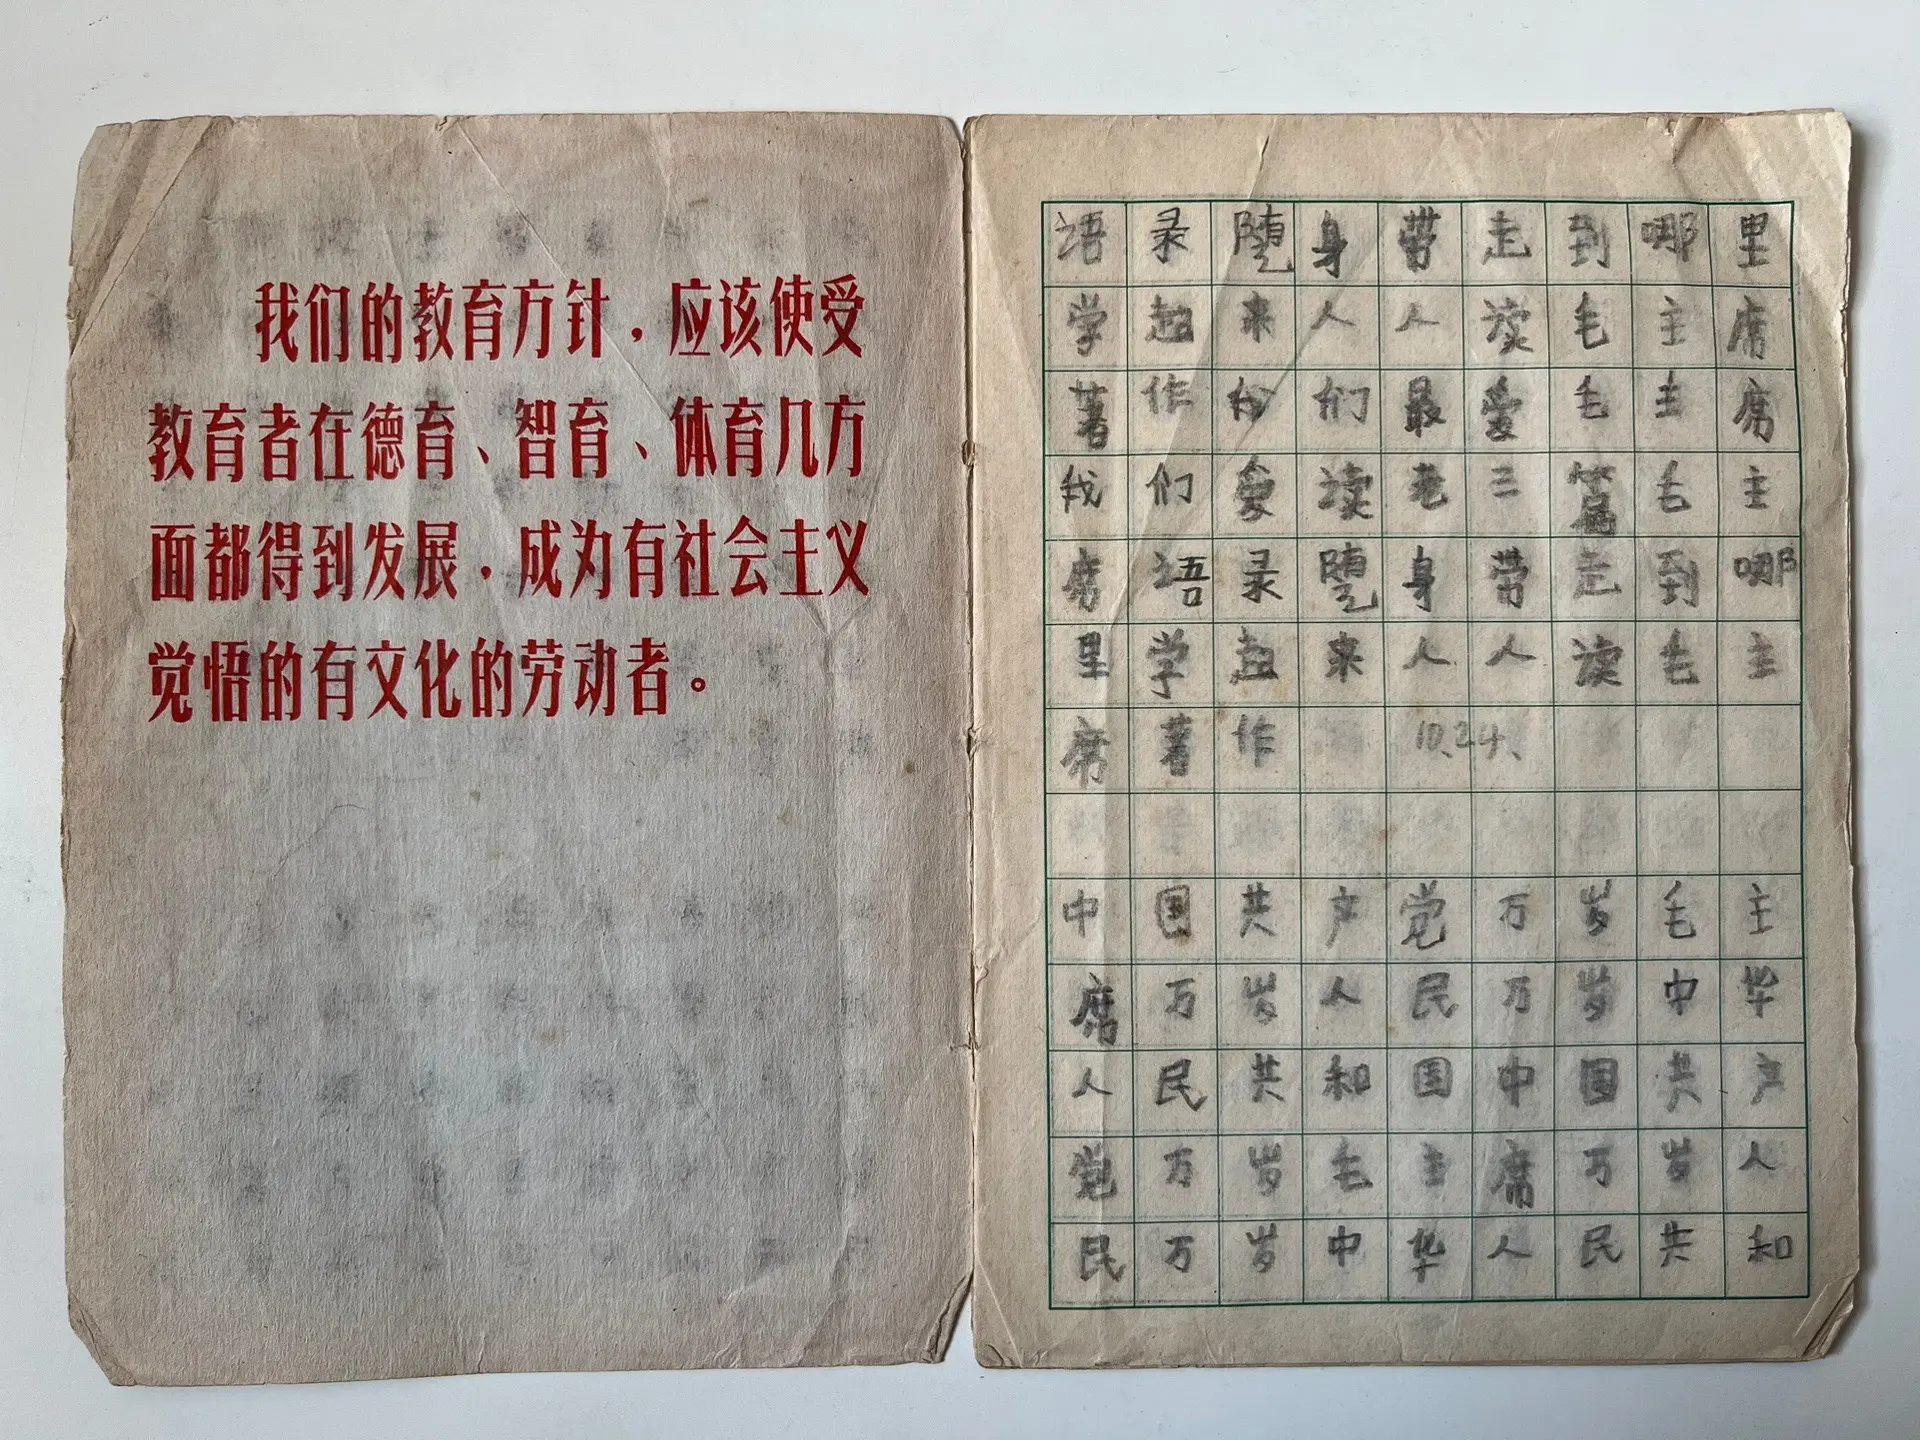 我们的教育方针，应该使受
教育者在德育、智育、体育几方
面都得到发展，成为有社会主义
觉悟的有文化的劳动者。
语录随身带走到哪里
学起来人人读毛主席
著作我们最爱毛主席
我们爱读老三篇毛主
席语录随身带走到哪
里学起来人人读毛主
席著作 10.24、
中国共产党万岁毛主
席万岁人民万岁中华
人民共和国中国共产
党万岁毛主席万岁人
民万岁中华人民共和